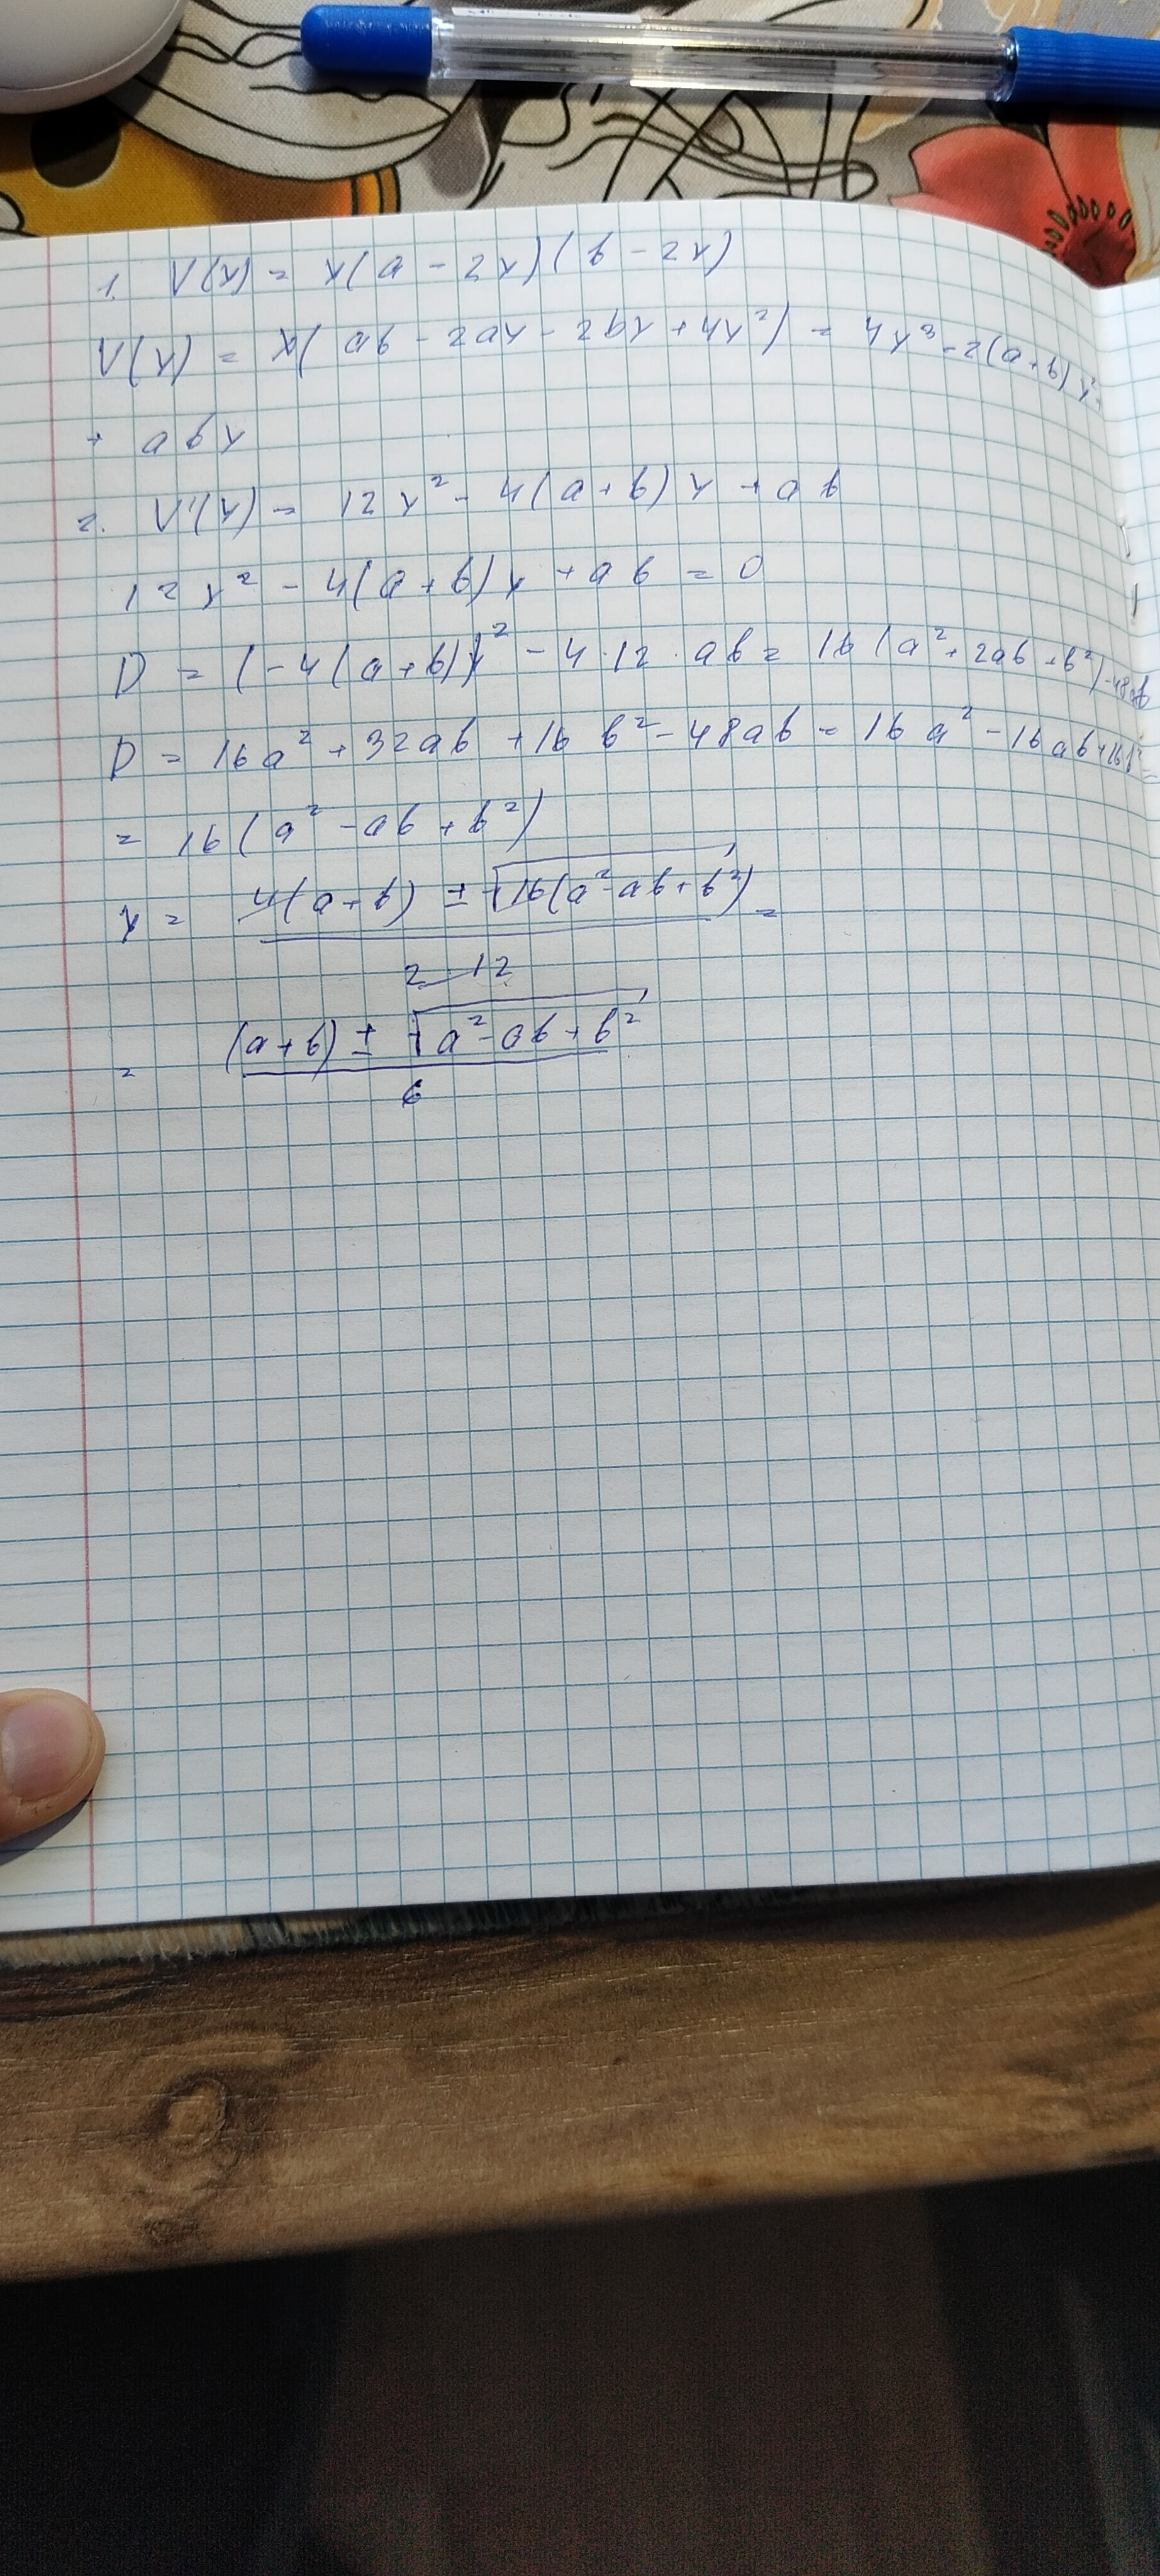 1. V(x) = x(a - 2x)(b - 2x)
V(x) = x(ab - 2ax - 2bx + 4x²) = 4x³ - 2(a+b)x² +
+ abx
2. V'(x) = 12x² - 4(a+b)x + ab
12x² - 4(a+b)x + ab = 0
D = (-4(a+b))² - 4·12·ab = 16(a² + 2ab + b²) - 48ab
D = 16a² + 32ab + 16b² - 48ab = 16a² - 16ab + 16b² =
= 16(a² - ab + b²)
x = (4(a+b) ± √16(a² - ab + b²)) / (2·12) =
= ((a+b) ± √a² - ab + b²) / 6